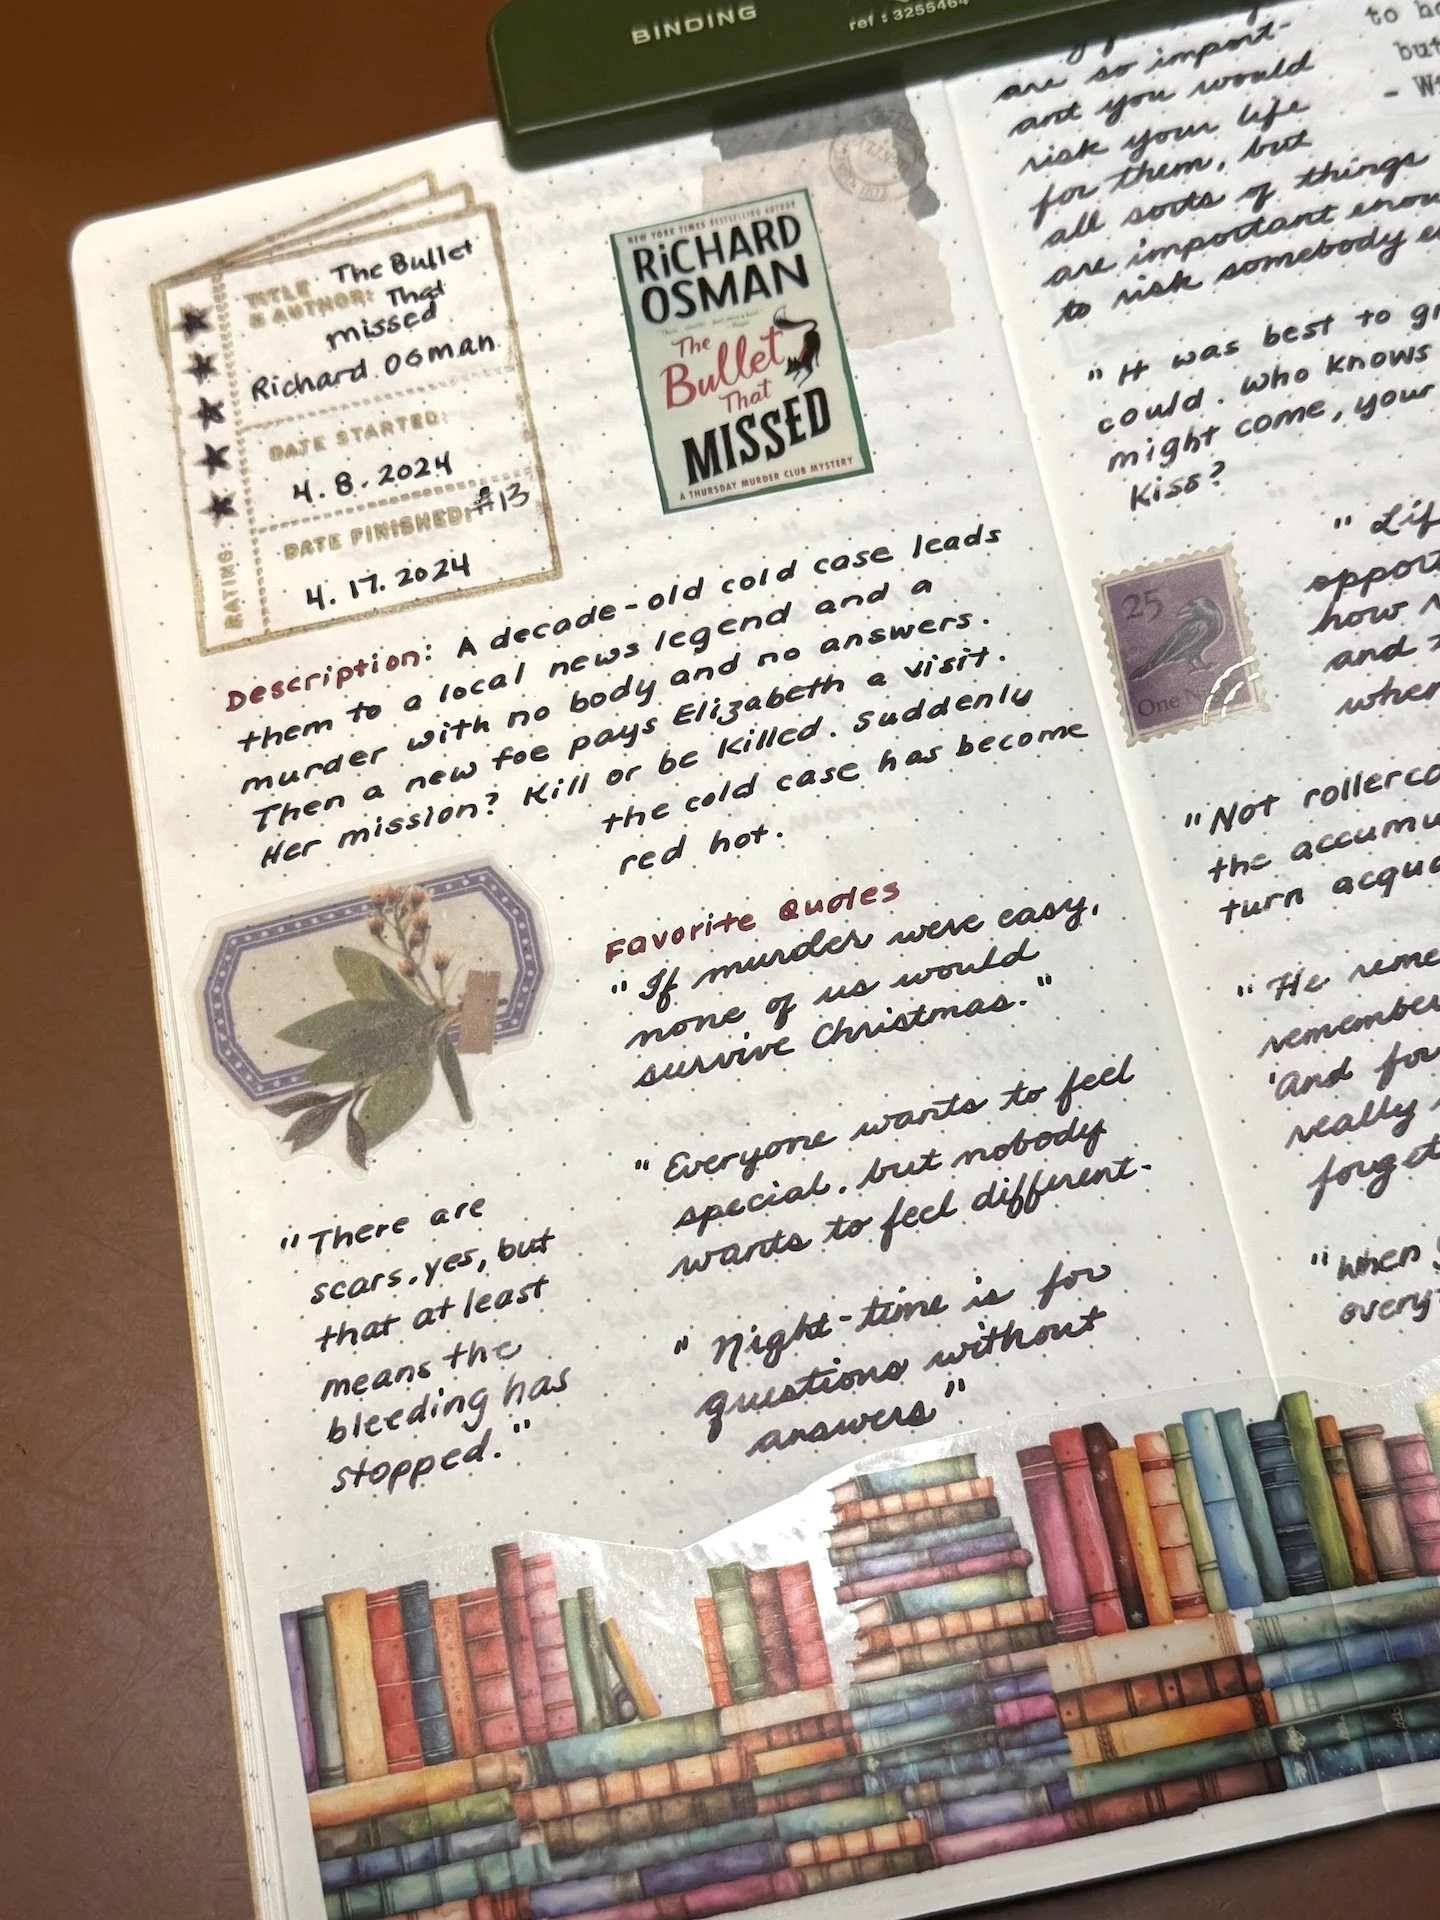 BINDING
ref : 3255464
TITLE & AUTHOR: The Bullet
That
missed
Richard Osman
DATE STARTED:
4.8.2024
#13
DATE FINISHED:
4.17.2024
RATING:
NEW YORK TIMES BESTSELLING AUTHOR
RICHARD
OSMAN
The
Bullet
That
MISSED
A THURSDAY MURDER CLUB MYSTERY
Description: A decade-old cold case leads
them to a local news legend and a
murder with no body and no answers.
Then a new foe pays Elizabeth a visit.
Her mission? Kill or be killed. Suddenly
the cold case has become
red hot.
Favorite Quotes
"If murder were easy,
none of us would
survive Christmas."
"Everyone wants to feel
special. but nobody
wants to feel different.
"Night-time is for
questions without
answers"
"There are
scars. yes, but
that at least
means the
bleeding has
stopped."
are so import-
ant you would
risk your life
for them, but
all sorts of things
are important
to risk somebody
to
but
"It was best to
could. Who knows
might come, your
kiss?
25
One
"
how
and
when
"Not
the
turn
"He
'And
really
"When